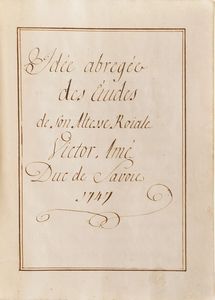 Idée abregée
des Etudes
de son Altesse Roiale
Victor Amé
Duc de Savoie
1747